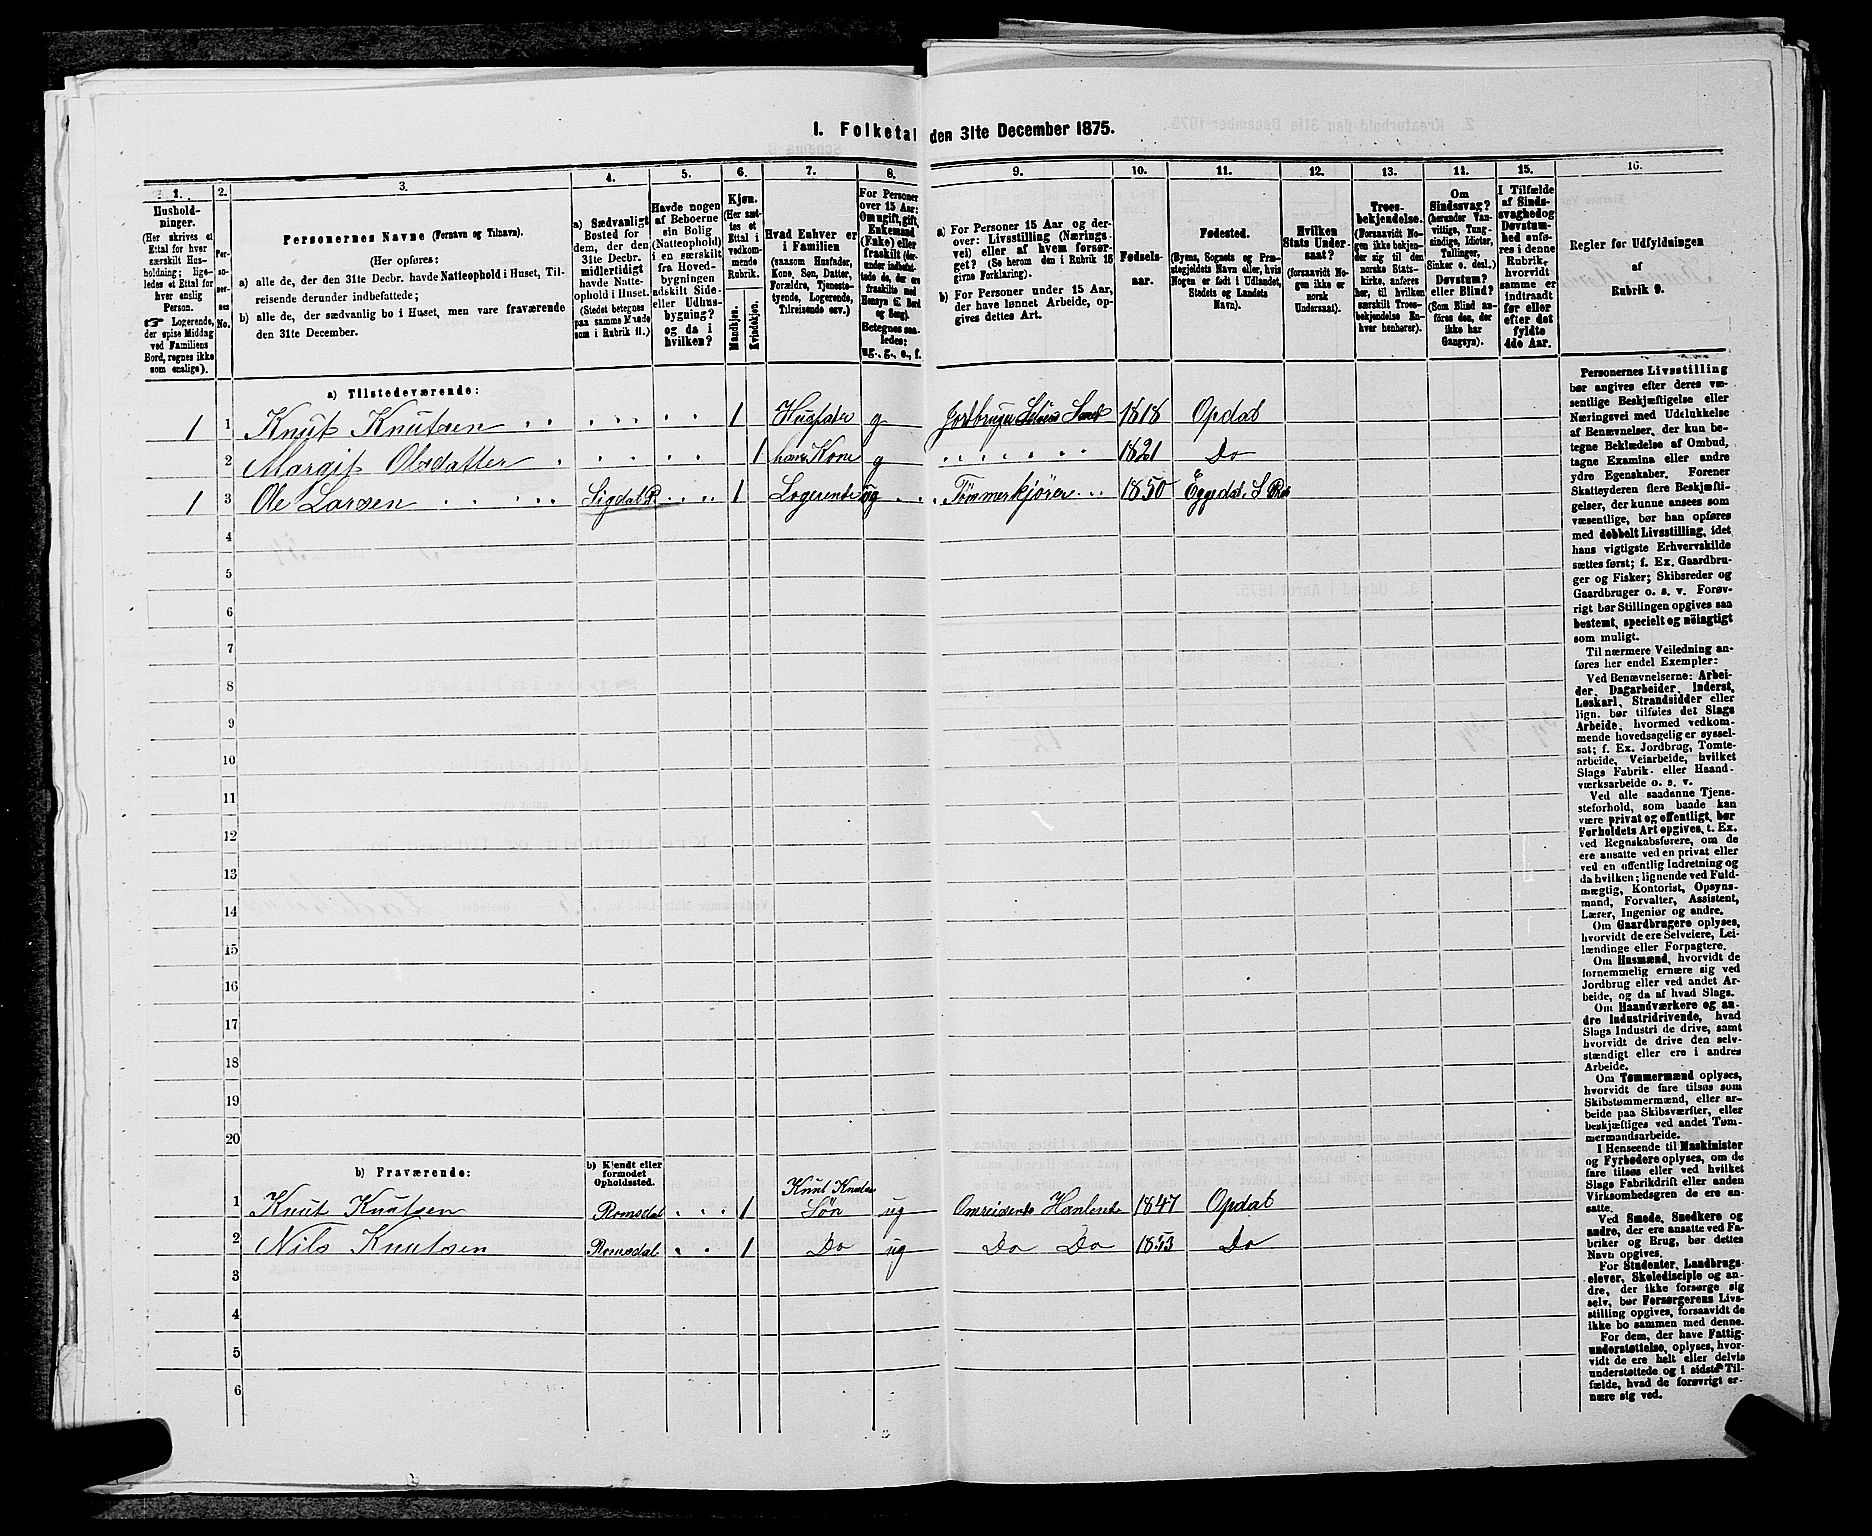 I. Folketal den 31te December 1875.
1. 2. 3. 4. 5. 6. 7. 8. 9. 10. 11. 12. 13. 14. 15. 16.
Hushold-
ninger.
(Her skrives et
Ettal for hver
særskilt Hus-
holdning; lige-
ledes et Ettal for
hver enslig
Person.
☞ Logerende,
der spise Middag
ved Familiens
Bord, regnes ikke
som enslige).
Per-
so-
ner-
nes
No.
Personernes Navne (Fornavn og Tilnavn).
(Her opføres:
a) alle de, der den 31te Decbr. havde Natteophold i Huset, Til-
reisende derunder indbefattede;
b) alle de, der sædvanlig bo i Huset, men vare fraværende
den 31te December.
a) Sædvanligt
Bosted for
dem, der den
31te Decbr.
midlertidigt
havde Natte-
ophold i Huset.
(Stedet betegnes
paa samme Maade
som i Rubrik 11.)
Havde nogen
af Beboerne
sin Bolig
(Natteophold)
i en særskilt
fra Hoved-
bygningen
adskilt Side-
eller Udhus-
bygning?
og da i
hvilken?
Kjøn.
(Her sæt-
tes et
Ettal i
vedkom-
mende
Rubrik.
Mandkjøn.
Kvindekjøn.
Hvad Enhver er
i Familien
(saasom Husfader,
Kone, Søn, Datter,
Forældre, Tjeneste-
tyende, Logerende,
Tilreisende osv.)
For Personer
over 15 Aar:
Om ugift, gift,
Enkemand
(Enke) eller
fraskilt (der-
under indbefat-
tede de, der ere
fraskilte med
Hensyn til Bord
og Seng).
Betegnes saa-
ledes:
ug., g., e., f.
a) For Personer 15 Aar og der-
over: Livsstilling (Nærings-
vei) eller af hvem forsør-
get? (Se herom den i Rubrik 16
givne Forklaring).
b) For Personer under 15 Aar,
der have lønnet Arbeide, op-
gives dettes Art.
Fødsels-
aar.
Fødested.
(Byens, Sognets og Præ-
stegjeldets Navn eller, hvis
Nogen er født i Udlandet,
Stedets og Landets
Navn).
Hvilken
Stats Under-
saat?
(forsaavidt No-
gen ikke er
norsk
Undersaat).
Troes-
bekjendelse.
(Forsaavidt No-
gen ikke bekjen-
der sig til den
norske Stats-
kirke, anføres
her, til hvilken
særskilt Troes-
bekjendelse En-
hver henhører).
Om
Sindssvag?
(herunder Van-
vittige, Tung-
sindige, Idioter,
Tullinger,
Sinker o. desl.)
Døvstum?
eller Blind?
(Som Blind an-
føres den, der
ikke har
Gangsyn).
I Tilfælde
af Sinds-
svaghed og
Døvstum-
hed anfø-
res i denne
Rubrik,
hvorvidt
samme er
indtraadt
før eller
efter det
fyldte
4de Aar.
Regler for Udfyldningen
af
Rubrik 9.
a) Tilstedeværende:
1 1 Knut Knutsen 1 Husfader g Jordbruger Selveier 1818 Opdal
2 Margit Olsdatter 1 hans Kone g 1821 Do
1 3 Ole Larsen Sigdal P. 1 Logerende ug Tømmerkjører 1850 Eggedal, S. Præst
4
5
6
7
8
9
10
11
12
13
14
15
16
17
18
19
20
b) Fraværende:
b) Kjendt eller
formodet
Opholdssted.
1 Knut Knutsen Romsdal 1 Knut Knutsen Søn ug Omreisende Handlende 1847 Opdal
2 Nils Knutsen Romsdal 1 Do ug Do Do 1853 Do
3
4
5
6
Personernes Livsstilling
bør angives efter deres væ-
sentlige Beskjæftigelse eller
Næringsvei med Udelukkelse
af Benævnelser, der kun be-
tegne Beklædelse af Ombud,
tagne Examina eller andre
ydre Egenskaber. Forener
Skatteyderen flere Beskjæfti-
gelser, der kunne ansees som
væsentlige, bør han opføres
med dobbelt Livsstilling, idet
hans vigtigste Erhvervskilde
sættes først; f. Ex. Gaardbru-
ger og Fisker; Skibsreder og
Gaardbruger o. s. v. Forøv-
rigt bør Stillingen opgives saa
bestemt, specielt og nöiagtigt
som muligt.
Til nærmere Veiledning an-
føres her endel Exempler:
Ved Benævnelserne: Arbei-
der, Dagarbeider, Inderst,
Løskarl, Strandsidder eller
lign. bør tilføies det Slags
Arbeide, hvormed vedkom-
mende hovedsagelig er syssel-
sat; f. Ex. Jordbrug, Tomte-
arbeide, Veiarbeide, hvilket
Slags Fabrik- eller Haand-
værksarbeide o. s. v.
Ved alle saadanne Tjene-
steforhold, som baade kan
være privat og offentligt, bør
Forholdets Art opgives, t. Ex.
ved Regnskabsførere, om de
ere ansatte ved en privat eller
ved en offentlig Indretning og
da hvilken; lignende ved Fuld-
mægtig, Kontorist, Opsyns-
mand, Forvalter, Assistent,
Lærer, Ingeniør og andre.
Om Gaardbrugere oplyses,
hvorvidt de ere Selveiere, Lei-
lændinge eller Forpagtere.
Om Husmænd, hvorvidt de
fornemmelig ernære sig ved
Jordbrug eller ved andet Ar-
beide, og da af hvad Slags.
Om Haandværkere og an-
dre Industridrivende, hvad
Slags Industri de drive, samt
hvorvidt de drive den selv-
stændigt eller ere i andres
Arbeide.
Om Tømmermænd oplyses,
hvorvidt de fare tilsøs som
Skibstømmermænd, eller ar-
beide paa Skibsværfter, eller
beskjæftiges ved andet Tøm-
mermandsarbeide.
I Henseende til Maskinister
og Fyrbødere oplyses, om de
fare tilsøs eller ved hvilket
Slags Fabrikdrift eller anden
Virksomhedsgren de ere an-
satte.
Ved Smede, Snedkere og
andre, der ere ansatte ved Fa-
briker og Brug, bør dettes
Navn opgives.
For Studenter, Landbrugs-
elever, Skoledisciple og an-
dre, der ikke forsørge sig
selv, bør Forsørgerens Livs-
stilling opgives, forsaavidt de
ikke bo sammen med denne.
For dem, der have Fattig-
understøttelse, oplyses, hvor-
vidt de ere helt eller delvis
understøttede og i sidste Til-
fælde, hvad de forøvrigt er-
nære sig ved.